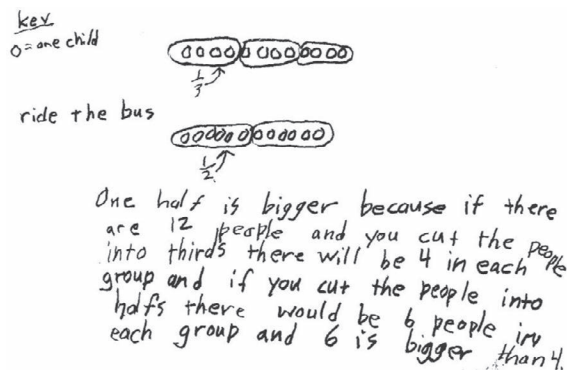 key
0 = one child
1/3
ride the bus
1/2
One half is bigger because if there
are 12 people and you cut the people
into thirds there will be 4 in each
group and if you cut the people into
halfs there would be 6 people in
each group and 6 is bigger than 4.